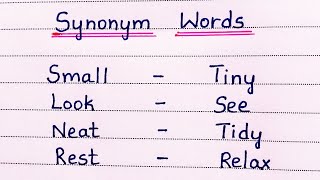 Synonym Words
Small - Tiny
Look - See
Neat - Tidy
Rest - Relax